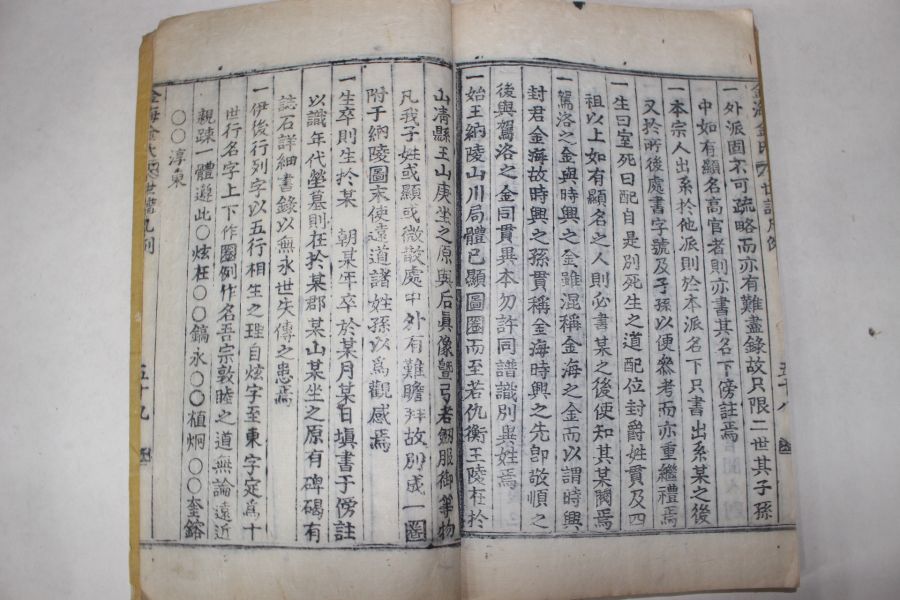 一外派固不可疏略而亦有難盡錄故只限二世其子孫
中如有顯名高官者則亦書其名下傍註焉
一本宗人出系於他派則於本派名下只書出系某之後
又於所後處書字號及子孫以便參考而亦重繼禮焉
一生曰室死曰配自是別死生之道配位封爵姓貫及四
祖以上如有顯名之人則必書某之後使知其某閥焉
一駕洛之金與時興之金雖混稱金海之金而以謂時興
封君金海故時興之孫貫稱金海時興之先卽敬順之
後與駕洛之金同貫異本勿許同譜識別異姓焉
一始王納陵山川局體已顯圖圈而至若仇衡王陵在於
山淸縣王山庚坐之原與后眞像曁弓者劒服御等物
凡我子姓或顯或微散處中外有難瞻拜故別成一圈
附于納陵圖末使遠道諸姓孫以爲觀感焉
一生卒則生於某 朝某年卒於某月某日塡書于傍註
以識年代塋墓則在於某郡某山某坐之原有碑碣有
誌石詳細書錄以無永世失傳之患焉
一伊後行列字以五行相生之理自炫字至東字定爲十
世行名字上下作圈例作名吾宗敦睦之道無論遠近
親疎一體遵此〇炫在〇〇鎬永〇〇植炯〇〇奎鎔
〇〇淳東
五十九